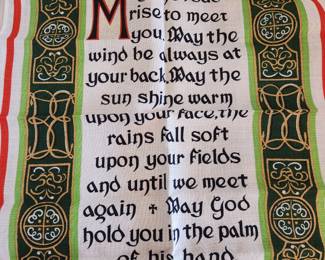 M
rise to meet
you. May the
wind be always at
your back. May the
sun shine warm
upon your face, the
rains fall soft
upon your fields
and until we meet
again + May God
hold you in the palm
of his hand